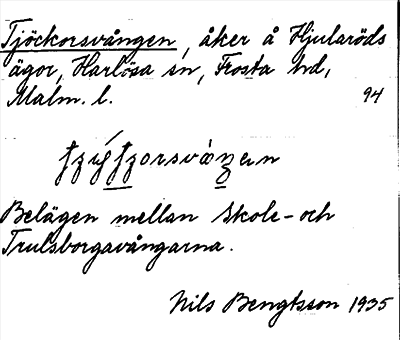 Tjöckorsvången, åker å Hjularöds
ägor, Harlösa sn, Frosta hd,
Malm. l. 94
Belägen mellan Skole- och
Trulsborgavångarna.
Nils Bengtsson 1935